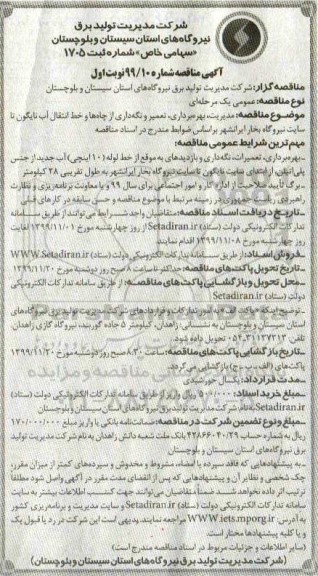 شرکت مدیریت تولید برق
نیروگاه‌های استان سیستان و بلوچستان
«سهامی خاص» شماره ثبت ۱۷۰۵
آگهی مناقصه شماره ۹۹/۱۰ نوبت اول
مناقصه گزار: شرکت مدیریت تولید برق نیروگاه‌های استان سیستان و بلوچستان
نوع مناقصه: عمومی یک مرحله‌ای
موضوع مناقصه: مدیریت، بهره‌برداری، تعمیر و نگهداری از چاه‌ها و خط انتقال آب نایگون تا
سایت نیروگاه بخار ایرانشهر براساس ضوابط مندرج در اسناد مناقصه
مهم‌ترین شرایط عمومی مناقصه:
ـ بهره‌برداری، تعمیرات، نگهداری و بازدیدهای به موقع از خط لوله (۱۰ اینچی) آب جدید از جنس
پلی‌اتیلن از ابتدای سایت نایگون تا سایت نیروگاه بخار ایرانشهر به طول تقریبی ۲۸ کیلومتر
ـ برگ تأیید صلاحیت از اداره کار و امور اجتماعی برای سال ۹۹ و یا معاونت برنامه‌ریزی و نظارت
راهبردی ریاست جمهوری در زمینه مرتبط با موضوع مناقصه و حسن سابقه در کارهای قبلی
ـ تاریخ دریافت اسناد مناقصه: متقاضیان واجد شرایط می‌توانند از طریق سامانه
تدارکات الکترونیکی دولت (ستاد) Setadiran.ir از روز چهارشنبه مورخ ۱۳۹۹/۱۱/۰۱ لغایت
روز چهارشنبه مورخ ۱۳۹۹/۱۱/۰۸ اقدام نمایند.
ـ فروش اسناد: از طریق سامانه تدارکات الکترونیکی دولت (ستاد) WWW.Setadiran.ir
ـ تاریخ تحویل پاکت‌های مناقصه: حداکثر تا ساعت ۸ صبح روز دوشنبه مورخ ۱۳۹۹/۱۱/۲۰
ـ محل تحویل و بازگشایی پاکت‌های مناقصه: از طریق سامانه تدارکات الکترونیکی
دولت (ستاد) Setadiran.ir
ـ توضیح اینکه پاکت الف به امور تدارکات و قراردادهای شرکت مدیریت تولید برق نیروگاه‌های
استان سیستان و بلوچستان به نشانی: زاهدان، کیلومتر ۵ جاده گوربند، نیروگاه گازی زاهدان
تحویل داده شود.
ـ تاریخ بازگشایی پاکت‌های مناقصه: ساعت ۸:۳۰ صبح روز دوشنبه مورخ ۱۳۹۹/۱۱/۲۰
پاکت‌های (الف ـ ب ـ ج) بازگشایی می‌گردد.
ـ مدت قرارداد: یکسال خورشیدی
ـ مبلغ خرید اسناد: ریال واریز از طریق سامانه تدارکات الکترونیکی دولت (ستاد)
Setadiran.ir بنام شرکت مدیریت تولید برق نیروگاه‌های استان سیستان و بلوچستان
ـ مبلغ و نوع تضمین شرکت در مناقصه: ضمانتنامه بانکی یا واریز مبلغ ۱۷۰/۰۰۰/۰۰۰
ریال به شماره حساب بانک ملت شعبه دانش زاهدان به نام شرکت مدیریت تولید
برق نیروگاه‌های استان سیستان و بلوچستان
ـ به پیشنهادهایی که فاقد سپرده یا امضاء، مشروط و مخدوش و سپرده‌های کمتر از میزان مقرر،
چک شخصی و نظایر آن و پیشنهادهایی که پس از انقضای مدت مقرر در آگهی واصل شود مطلقا
ترتیب اثر داده نخواهد شد. ضمناً متقاضیان می‌توانند جهت کسب اطلاعات بیشتر به سایت
تدارکات الکترونیکی دولت (ستاد) Setadiran.ir و سایت مدیریت و برنامه‌ریزی کشور
به آدرس: WWW.iets.mporg.ir مراجعه نمایند. بدیهی است این شرکت در رد یا قبول یک
و یا کلیه پیشنهادها مختار است.
(سایر اطلاعات و جزئیات مربوط در اسناد مناقصه مندرج است)
(شرکت مدیریت تولید برق نیروگاه‌های استان سیستان و بلوچستان)